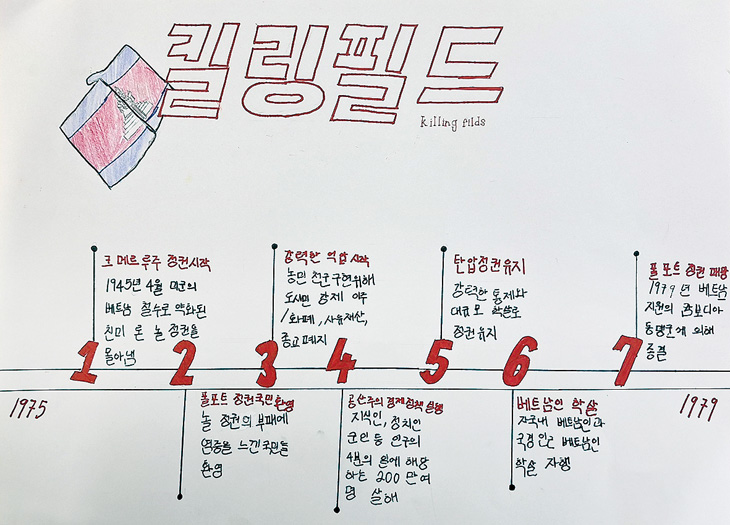 킬링필드
killing filds
크메르루주 정권시작
1945년 4월 미군의
베트남 철수로 약화된
친미 론 놀 정권을
몰아냄
강력한 억압 시작
농민 천국구현위해
도시민 강제 이주
/화폐, 사유재산,
종교 폐지
탄압정권유지
강력한 통제와
대규모 학살로
정권 유지
폴 포트 정권 패망
1979년 베트남
지원의 캄보디아
동맹군에 의해
종결
1 2 3 4 5 6 7
1975
1979
폴포트 정권국민환영
놀 정권의 부패에
염증을 느낀국민들
환영
공산주의 경제정책 실행
지식인, 정치인
군인 등 인구의
4분의 1에 해당
하는 200 만 여
명 살해
베트남인 학살
자국내 베트남인과
국경 인근 베트남인
학살 자행